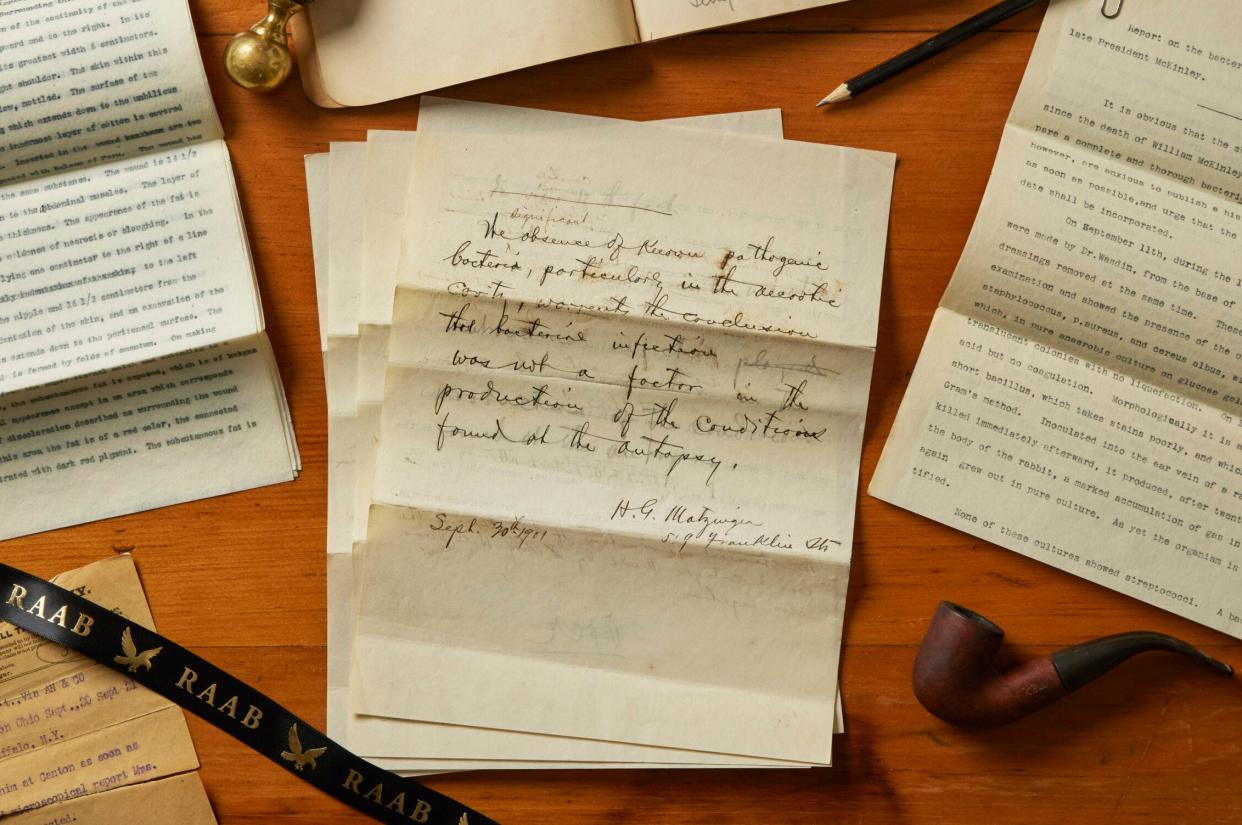 of the continuity of the
and to the right. In its
its greatest width 5 centimetres.
shoulder. The skin within this
mottled. The surface of the
which extends down to the umbilicus
innermost layer of cotton is covered
Inserted in the wound are two
with Balsam of Peru. The wound has
the same substance. The wound is 14 1/2
to the abdominal muscles. The layer of
thickness. The appearance of the fat is
evidence of necrosis or sloughing. In the
lying one centimeter to the right of a line
to the left
nipple and 16 1/2 centimeters from the
Contusion of the skin, and an excavation of the
extends down to the peritoneal surface. The
is formed by folds of omentum. On making
the subcutaneous fat is exposed, which is of
appearance except in an area which corresponds
discoloration described as surrounding the wound
this area the fat is of a red color, the connected
with dark red pigment. The subcutaneous fat is
significant
The absence of known pathogenic
bacteria, particularly in the necrotic
cavity, warrants the conclusion
that bacterial infection
was not a factor in the
production of the conditions
found at the autopsy.
H.G. Matzinger
Sept. 30th 1901
519 Franklin St
Report on the
late President McKinley.
It is obvious that the
since the death of William McKinley
pare a complete and thorough
however, are anxious to publish a
as soon as possible, and urge that the
date shall be incorporated.
On September 11th, during the
were made by Dr. Wasdin, from the base of
dressings removed at the same time. These
examination and showed the presence of the
staphylococcus, p. aureus, and cereus albus,
which, in pure anaerobic culture on glucose
translucent colonies with no liquefaction. On
acid but no coagulation. Morphologically it is a
short bacillus, which takes stains poorly, and which
Gram's method. Inoculated into the ear vein of a
killed immediately afterward, it produced, after
the body of the rabbit, a marked accumulation of gas in
again grew out in pure culture. As yet the organism is
tified.
None of these cultures showed streptococci. A
RAAB RAAB RAAB
Via AH & CO
Ohio Sept., 20 Sept
N.Y.
him at Canton as soon as
microscopical report Mrs.